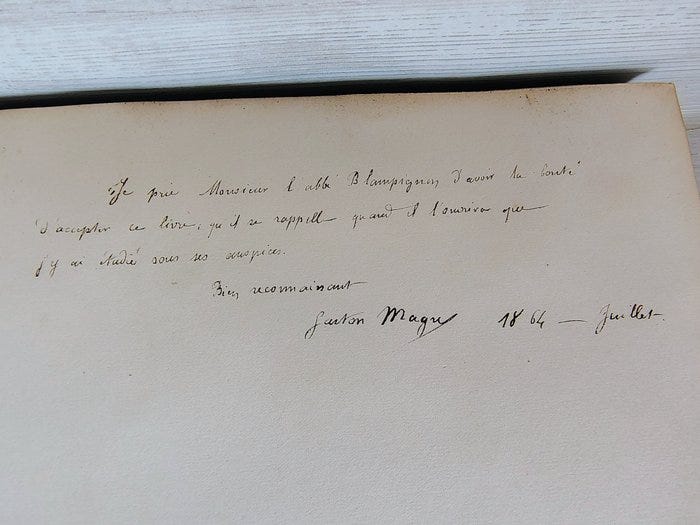 Je prie Monsieur l'abbé Blampignon d'avoir la bonté
d'accepter ce livre, qu'il se rappelle quand il l'ouvrira que
j'y ai étudié sous ses auspices.
Bien reconnaissant
Gaston Magu 1864 — Juillet.